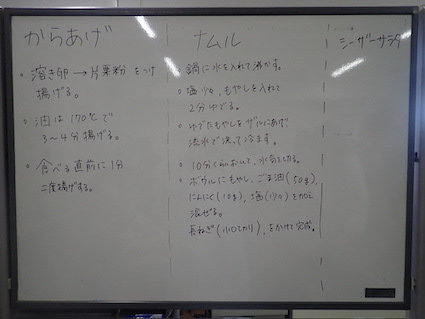 からあげ
溶き卵→片栗粉をつけ
揚げる。
油は170℃で
3〜4分揚げる。
食べる直前に1分
二度揚げする。
ナムル
鍋に水を入れて沸かす。
塩少々、もやしを入れて
2分ゆでる。
ゆでたもやしをザルにあげ
流水で洗って冷ます。
10分くらおいて、水気を切る。
ボウルにもやし、ごま油(50g)、
にんにく(10g)、塩(少々)を加え
混ぜる。
長ねぎ(小口切り)をかけて完成。
シーザーサラダ